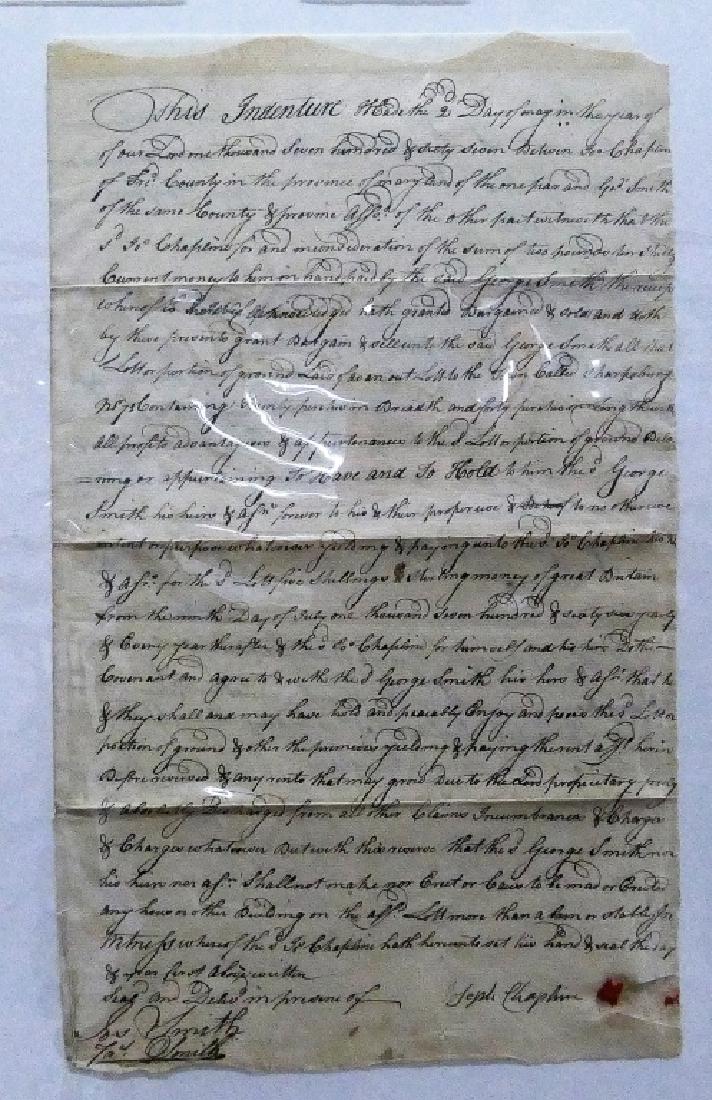 This Indenture Made the 2d Day of may in the year of
of our Lord one thousand Seven hundred & sixty seven Betwin Jos Chapline
of Frd County in the province of maryland of the one part and Geo Smith
of the same County & provine Affd of the other part witnesseth that the
sd Jos Chapline for and in consideration of the sum of two pounds ten Shillgs
Current money to him in hand paid by the said George Smith the receipt
whereof is hereby Acknowledged hath granted Bargained & sold and doth
by these presents grant Bargain & sell unto the said George Smith all that
Lott or portion of ground Laid of as an out Lott to the town Called Sharpsburg
No 75 Containing twenty perches in Breadth and forty perches in Long
all profits advantages & appurtenance to the sd Lott or portion of ground Belo
=nging or appertaining To Have and To Hold to him the sd George
Smith his heirs & Assns forever to his & their proper use & to no other use
intent or purpose whatsoever yielding & paying unto the sd Jos Chapline his
& Assns for the sd Lott five Shillings Sterling money of great Britain
from the ninth Day of July one thousand Seven hundred & sixty six yearly
& Every year thereafter & the sd Jos Chapline for himself and his heirs Doth
Covenant and agree to & with the sd George Smith his heirs & Assns that he
& they shall and may have hold and peacably Enjoy and the sd Lott or
portion of ground & other the premises yielding & paying the rent affd herein
Before reserved & any rents that may grow Due to the Lord propietary
& Discharged from all other Claims Incumbrances & Charges
& Charges whatsoever But with this reserve that the sd George Smith nor
his heirs nor assns Shall not make nor Erect or Caus to be mad or Erected
any house or other Building on the affd Lott more than a barn or stable In
Witness whereof the sd Jos Chapline hath hereunto set his hand & seal the day
& year first above written
Seald and Delivd in presence of Joseph Chapline
Jas Smith
Smith